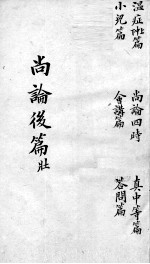 温症篇
小兒篇
尚論四時
會講篇
真中等篇
答問篇
尚論後篇 壯